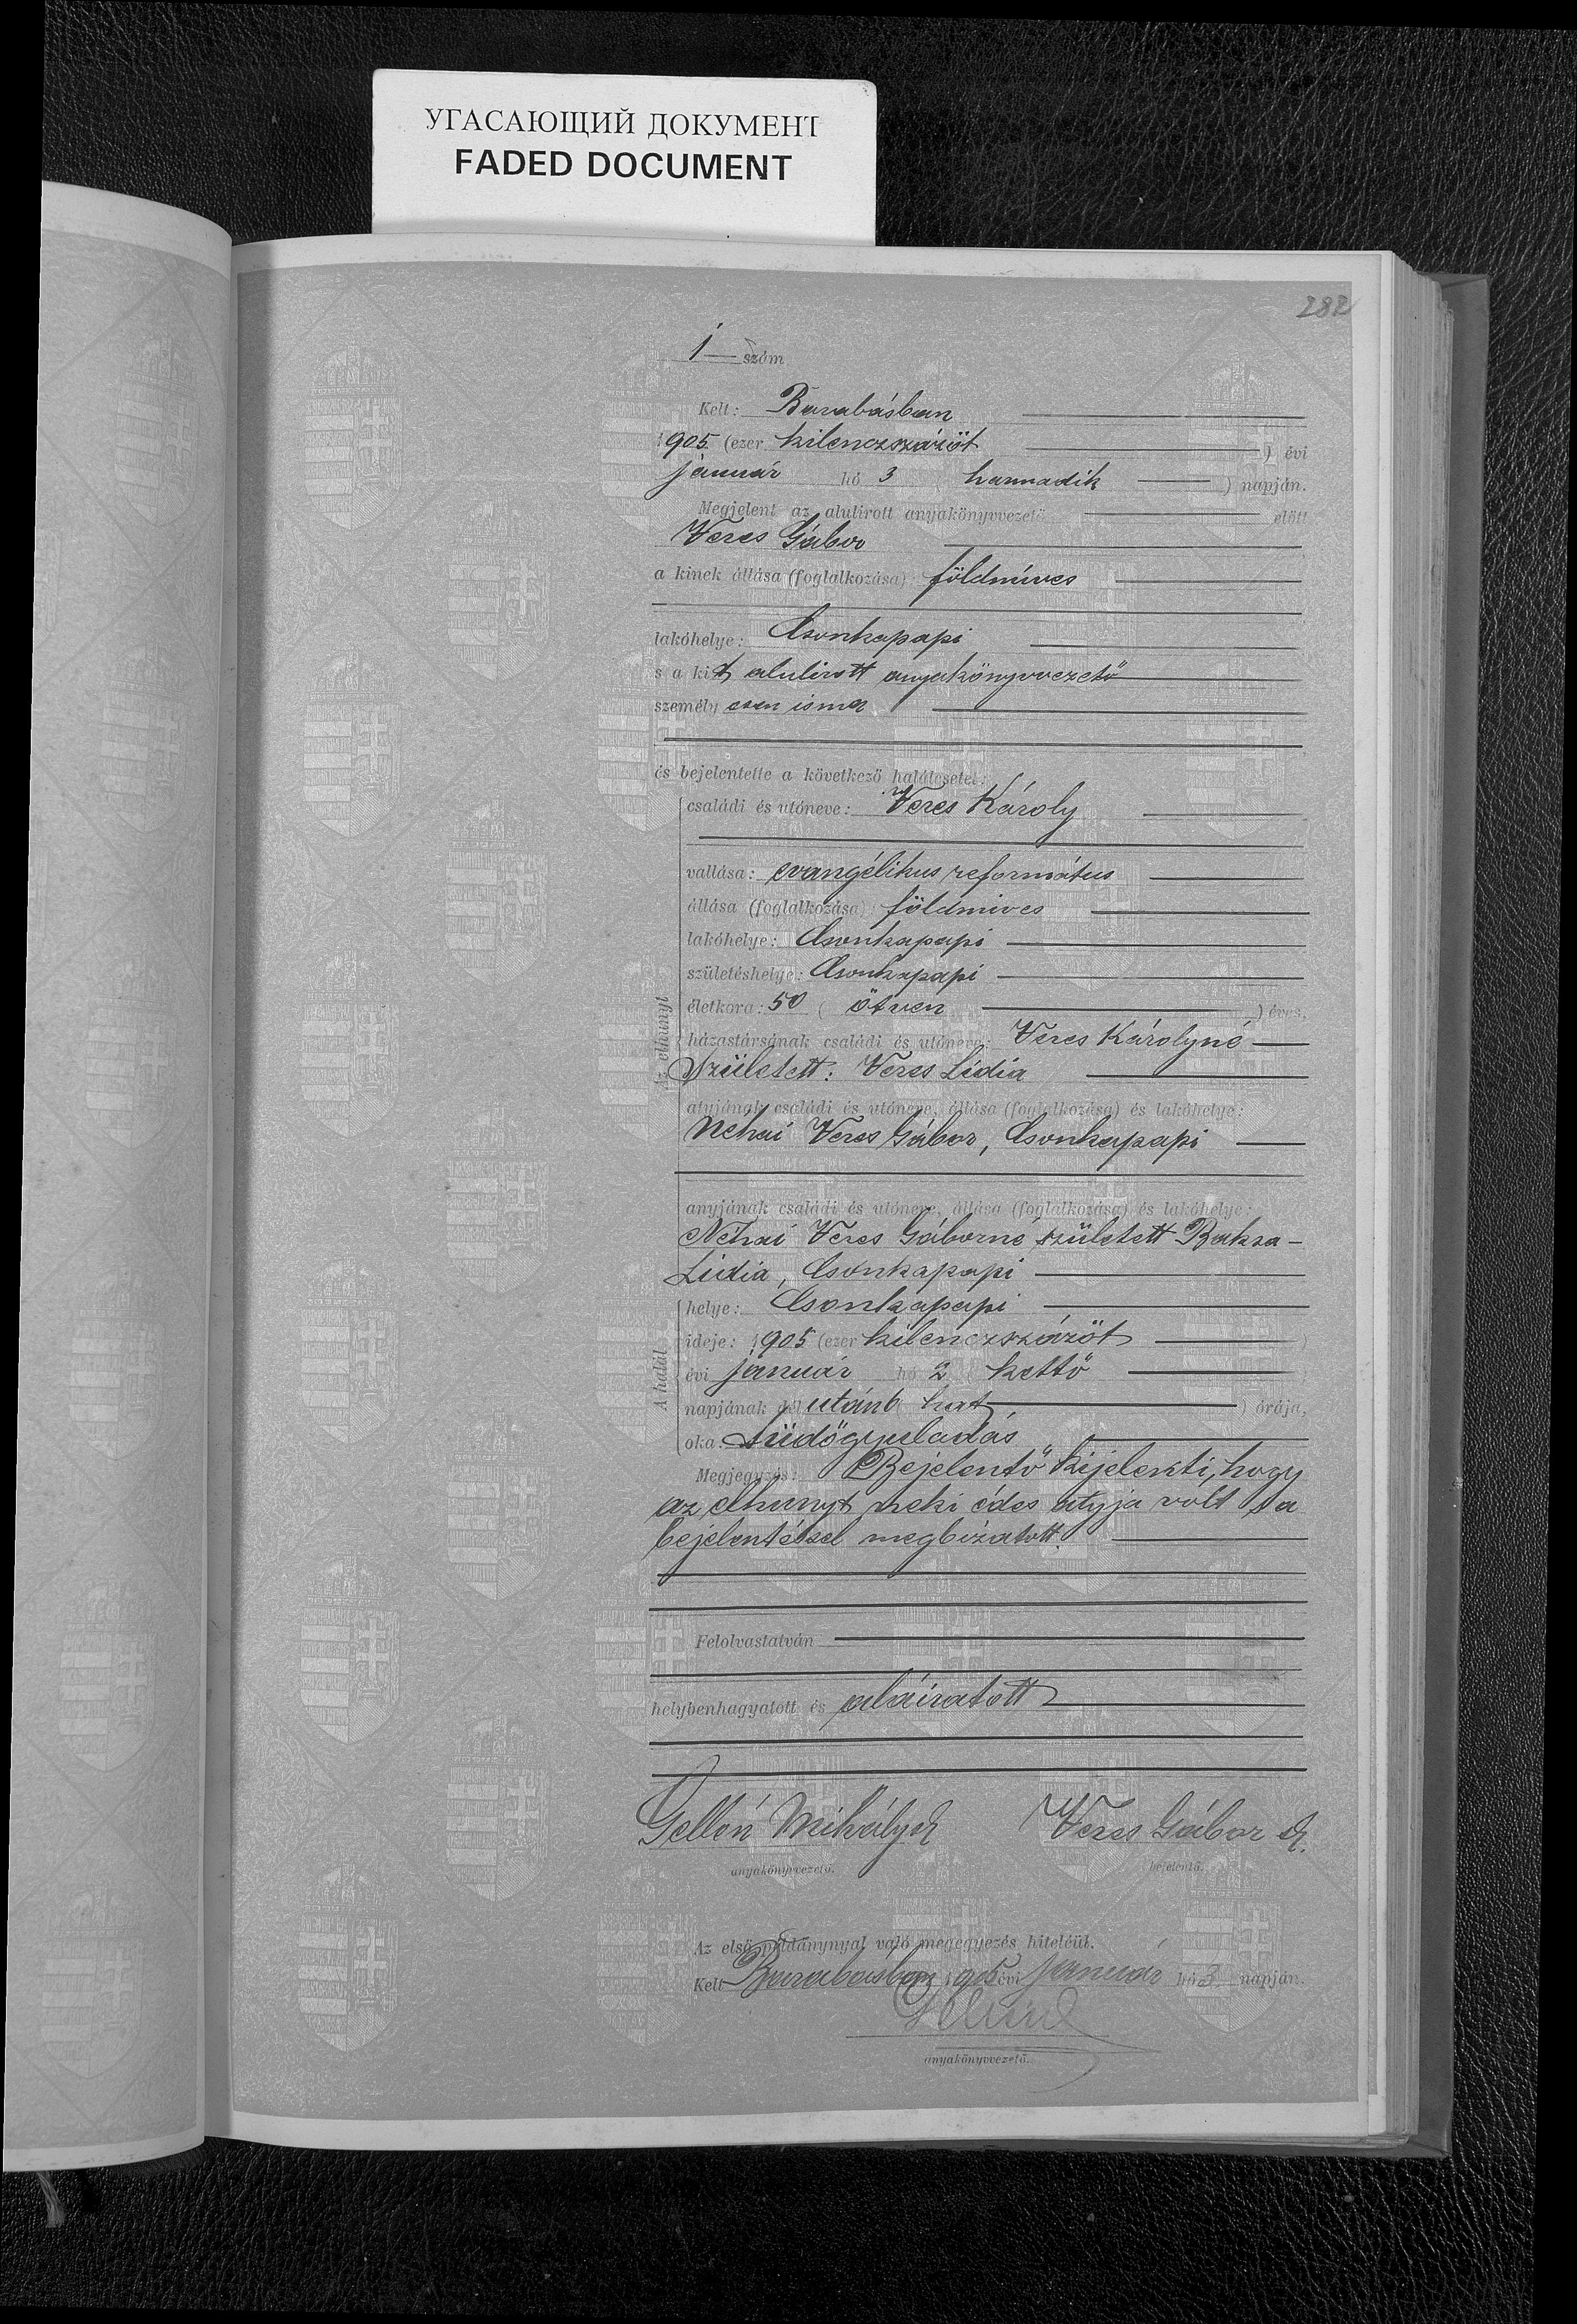 УГАСАЮЩИЙ ДОКУМЕНТ
FADED DOCUMENT
282
1 szám
Kelt: Barabásban
1905 (ezer kilenczszázöt ) évi
január hó 3 ( harmadik ) napján.
Megjelent az alulirott anyakönyvvezető előtt
Veres Gábor
a kinek állása (foglalkozása): földmíves
lakóhelye: Csonkapapi
s a kit alulirott anyakönyvvezető
személyesen ismer
és bejelentette a következő halálesetet:
Az elhunyt
családi és utóneve: Veres Károly
vallása: evangélikus református
állása (foglalkozása): földmives
lakóhelye: Csonkapapi
születéshelye: Csonkapapi
életkora: 50 ( ötven ) éves,
házastársának családi és utóneve: Veres Károlyné
Született: Veres Lidia
atyjának családi és utóneve, állása (foglalkozása) és lakóhelye:
Néhai Veres Gábor, Csonkapapi
anyjának családi és utóneve, állása (foglalkozása) és lakóhelye:
Néhai Veres Gáborné született Baksa-
Lidia, Csonkapapi
A halál
helye: Csonkapapi
ideje: 1905 (ezer kilenczszázöt )
évi január hó 2 ( kettő )
napjának dél után 6 ( hat ) órája,
oka: Tüdőgyuladás
Megjegyzés: Bejelentő kijelenti, hogy
az elhunyt neki édes atyja volt s a
bejelentéssel megbizatott.
Felolvastatván
helybenhagyatott és aláiratott
Gellén Mihály Veres Gábor
anyakönyvvezető. bejelentő.
Az első példánynyal való megegyezés hiteléül.
Kelt Barabásban 1905 évi január hó 3 napján.
anyakönyvvezető.